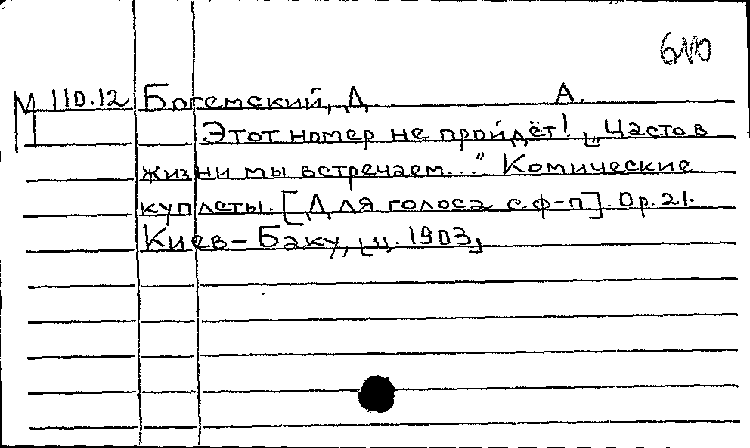 М 110.12 Богемский, Д. А.
Этот номер не пройдёт! „Часто в
жизни мы встречаем..." Комические
куплеты. [Для голоса с ф-п]. Op. 21.
Киев-Баку, ц. 1903,